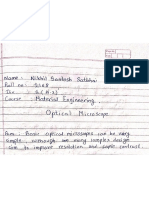 Name : Nikhil Santosh Satbhai
Roll no :
Div :
Course : Material Engineering.
Optical Microscope
Aim : Basic optical microscopes can be very
simple although we many complex design
aim to improve resolution and sample contrast.